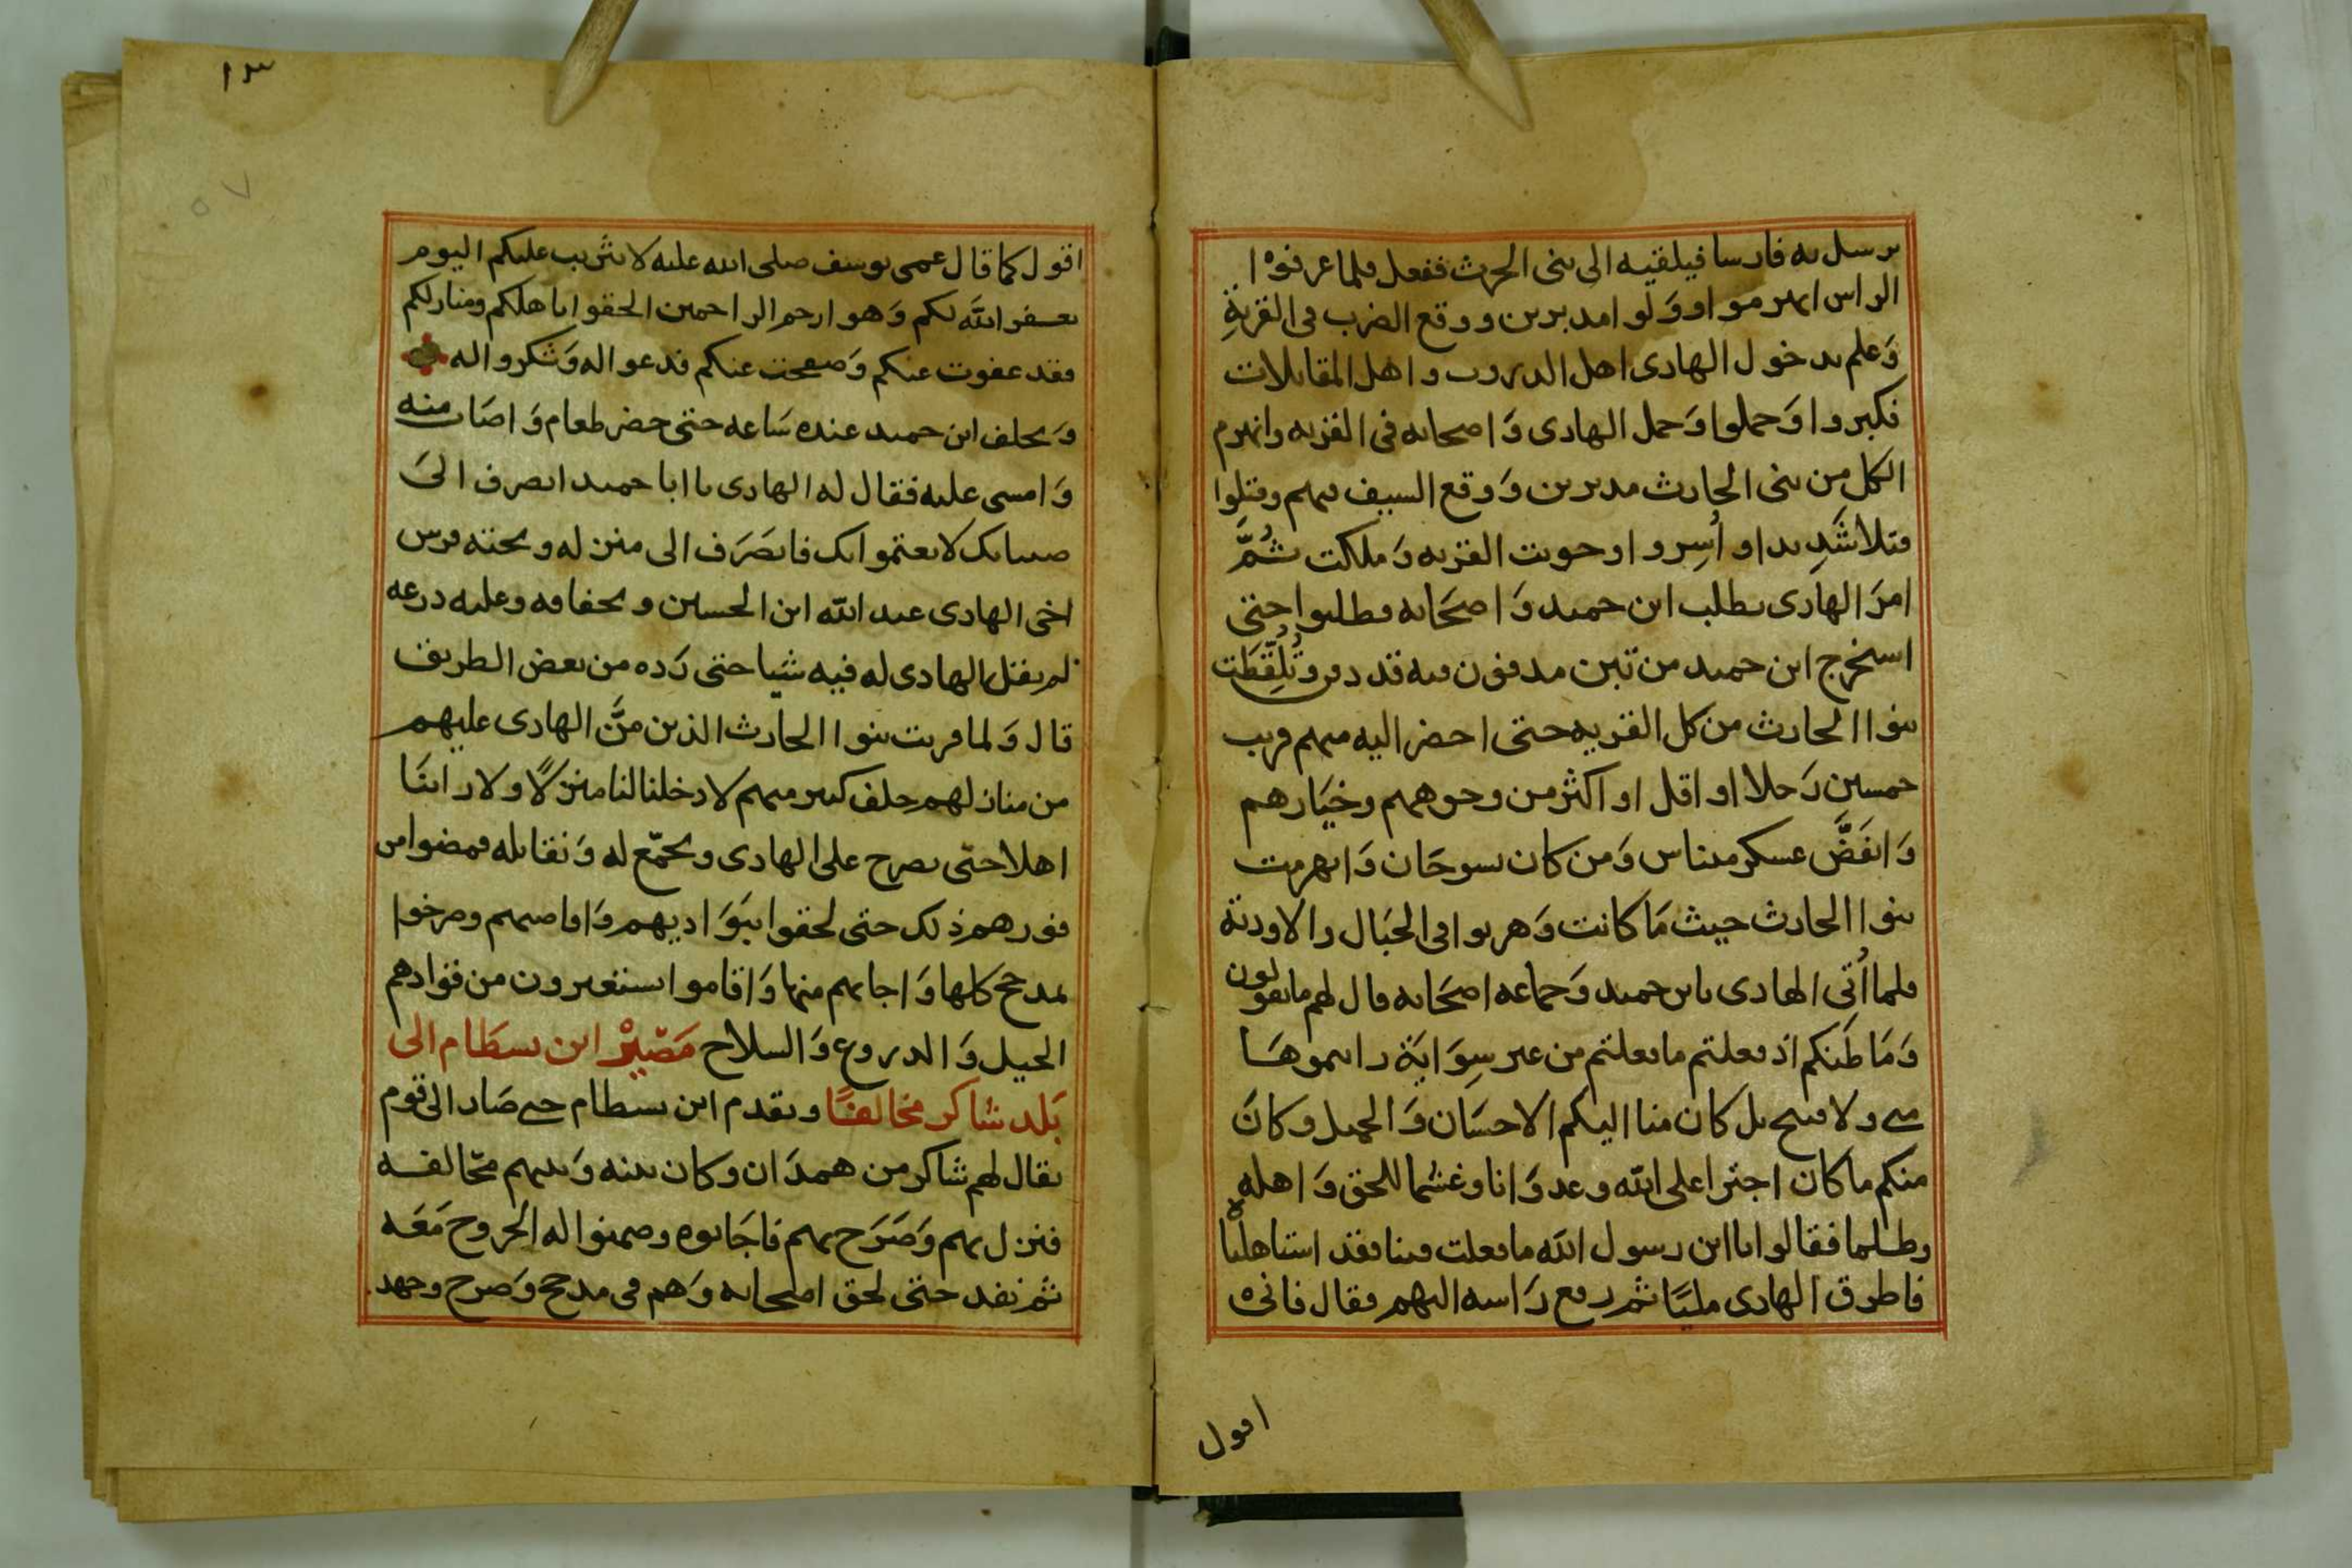 يرسل به فارسا فيلقيه الى بنى الحرث ففعل فلما عرفوه ا
الراس انهزموا وَولوا مدبرين ووقع الضرب فى القريةِ
وَعلم بدخول الهادى اهل الدروب واهل المقابلات
فكبروا وَحملوا وَحمل الهادى وَاصحابه فى القريه وانهزم
الكل من بنى الحارث مدبرين وَوقع السيف فيهم وقتلوا
قتلا شَدِيدا واُسِروا وحويت القريه وَملكت ثُمَّ
امرَ الهادى بطلب ابن حميد وَاصحَابه فطلبوا حتى
استخرج ابن حميد من تبن مدفون فيه قد دفن وتُلُقِّطَت
بنوا الحارث من كل القريه حتى احضر اليه منهم قريب
خمسين رَجلا او اقل او اكثر من وجوههم وخيَارهم
وَانفَضَّ عسكر ميناس وَمن كان بسوحَان وَانهزمت
بنوا الحارث حيث مَا كانت وَهربوا فى الجبَال والاودية
فلما اُتى الهادى بابن حميد وَجماعه اصحَابه قال لهم ما تقولون
وَمَا ظَنكم اذ فعلتم ما فعلتم من غير سِوَايَة رايموهَا
منى ولا قبيح بل كان منا اليكم الاحسَان وَالجميل وكانَ
منكم ما كان اجترا على الله وعدوَانا وغشما للحق وَاهله
وظلما فقالوا يا ابن رسول الله ما فعلت فينا فقد استاهلنا
فاطرق الهادى مليًا ثم رفع رَاسه اليهم فقال فانى
اقول
١٣
٥٧
اقول كما قال عمى يوسف صلى الله عليه لا تثريب عليكم اليوم
يغفر اللَّه لكم وَهو ارحم الراحمين الحقوا باهلكم ومنازلكم
فقد عفوت عنكم وَصفحت عنكم فدعوا له وَشكروا له
وَتخلف ابن حميد عنده سَاعه حتى حضر طعام وَاصَاب منه
وَامسى عليه فقال له الهادى يا ابا حميد انصرف الىَ
صبيانك لا يغتموا بك فانصَرَف الى منزله وتحته فرس
اخى الهادى عبد الله ابن الحسين وتجفافه وعليه درعه
لم يقتل الهادى له فيه شيا حتى رَده من بعض الطريق
قال وَلما قربت بنوا الحارث الذين منَّ الهادى عليهم
من منازلهم حلف كبير منهم لا دخلنا لنا منزلًا ولا راينَا
اهلا حتّى نصرح على الهادى ونجمّع له وَنقاتله فمضوا من
فورهم ذلك حتى لحقوا ببَوَاديهم وَاقاصيهم وصرخوا
لمذحج كلها وَاجابهم منها وَاقاموا يستغيرون من قوادهم
الخيل وَالدروع وَالسلاح مَصَيْرُ ابن بسطَام الى
بَلد شاكر مخالفًا وتقدم ابن بسطام حتى صَار الى قوم
يقال لهم شاكر من همدَان وكان بينه وَبينهم مخالفه
فنزل بهم وَصَرَح بهم فاجَابوه وضمنوا له الخروح مَعَه
ثم نفد حتى لحق اصحابه وَهم فى مدحج وَصرح وجهد